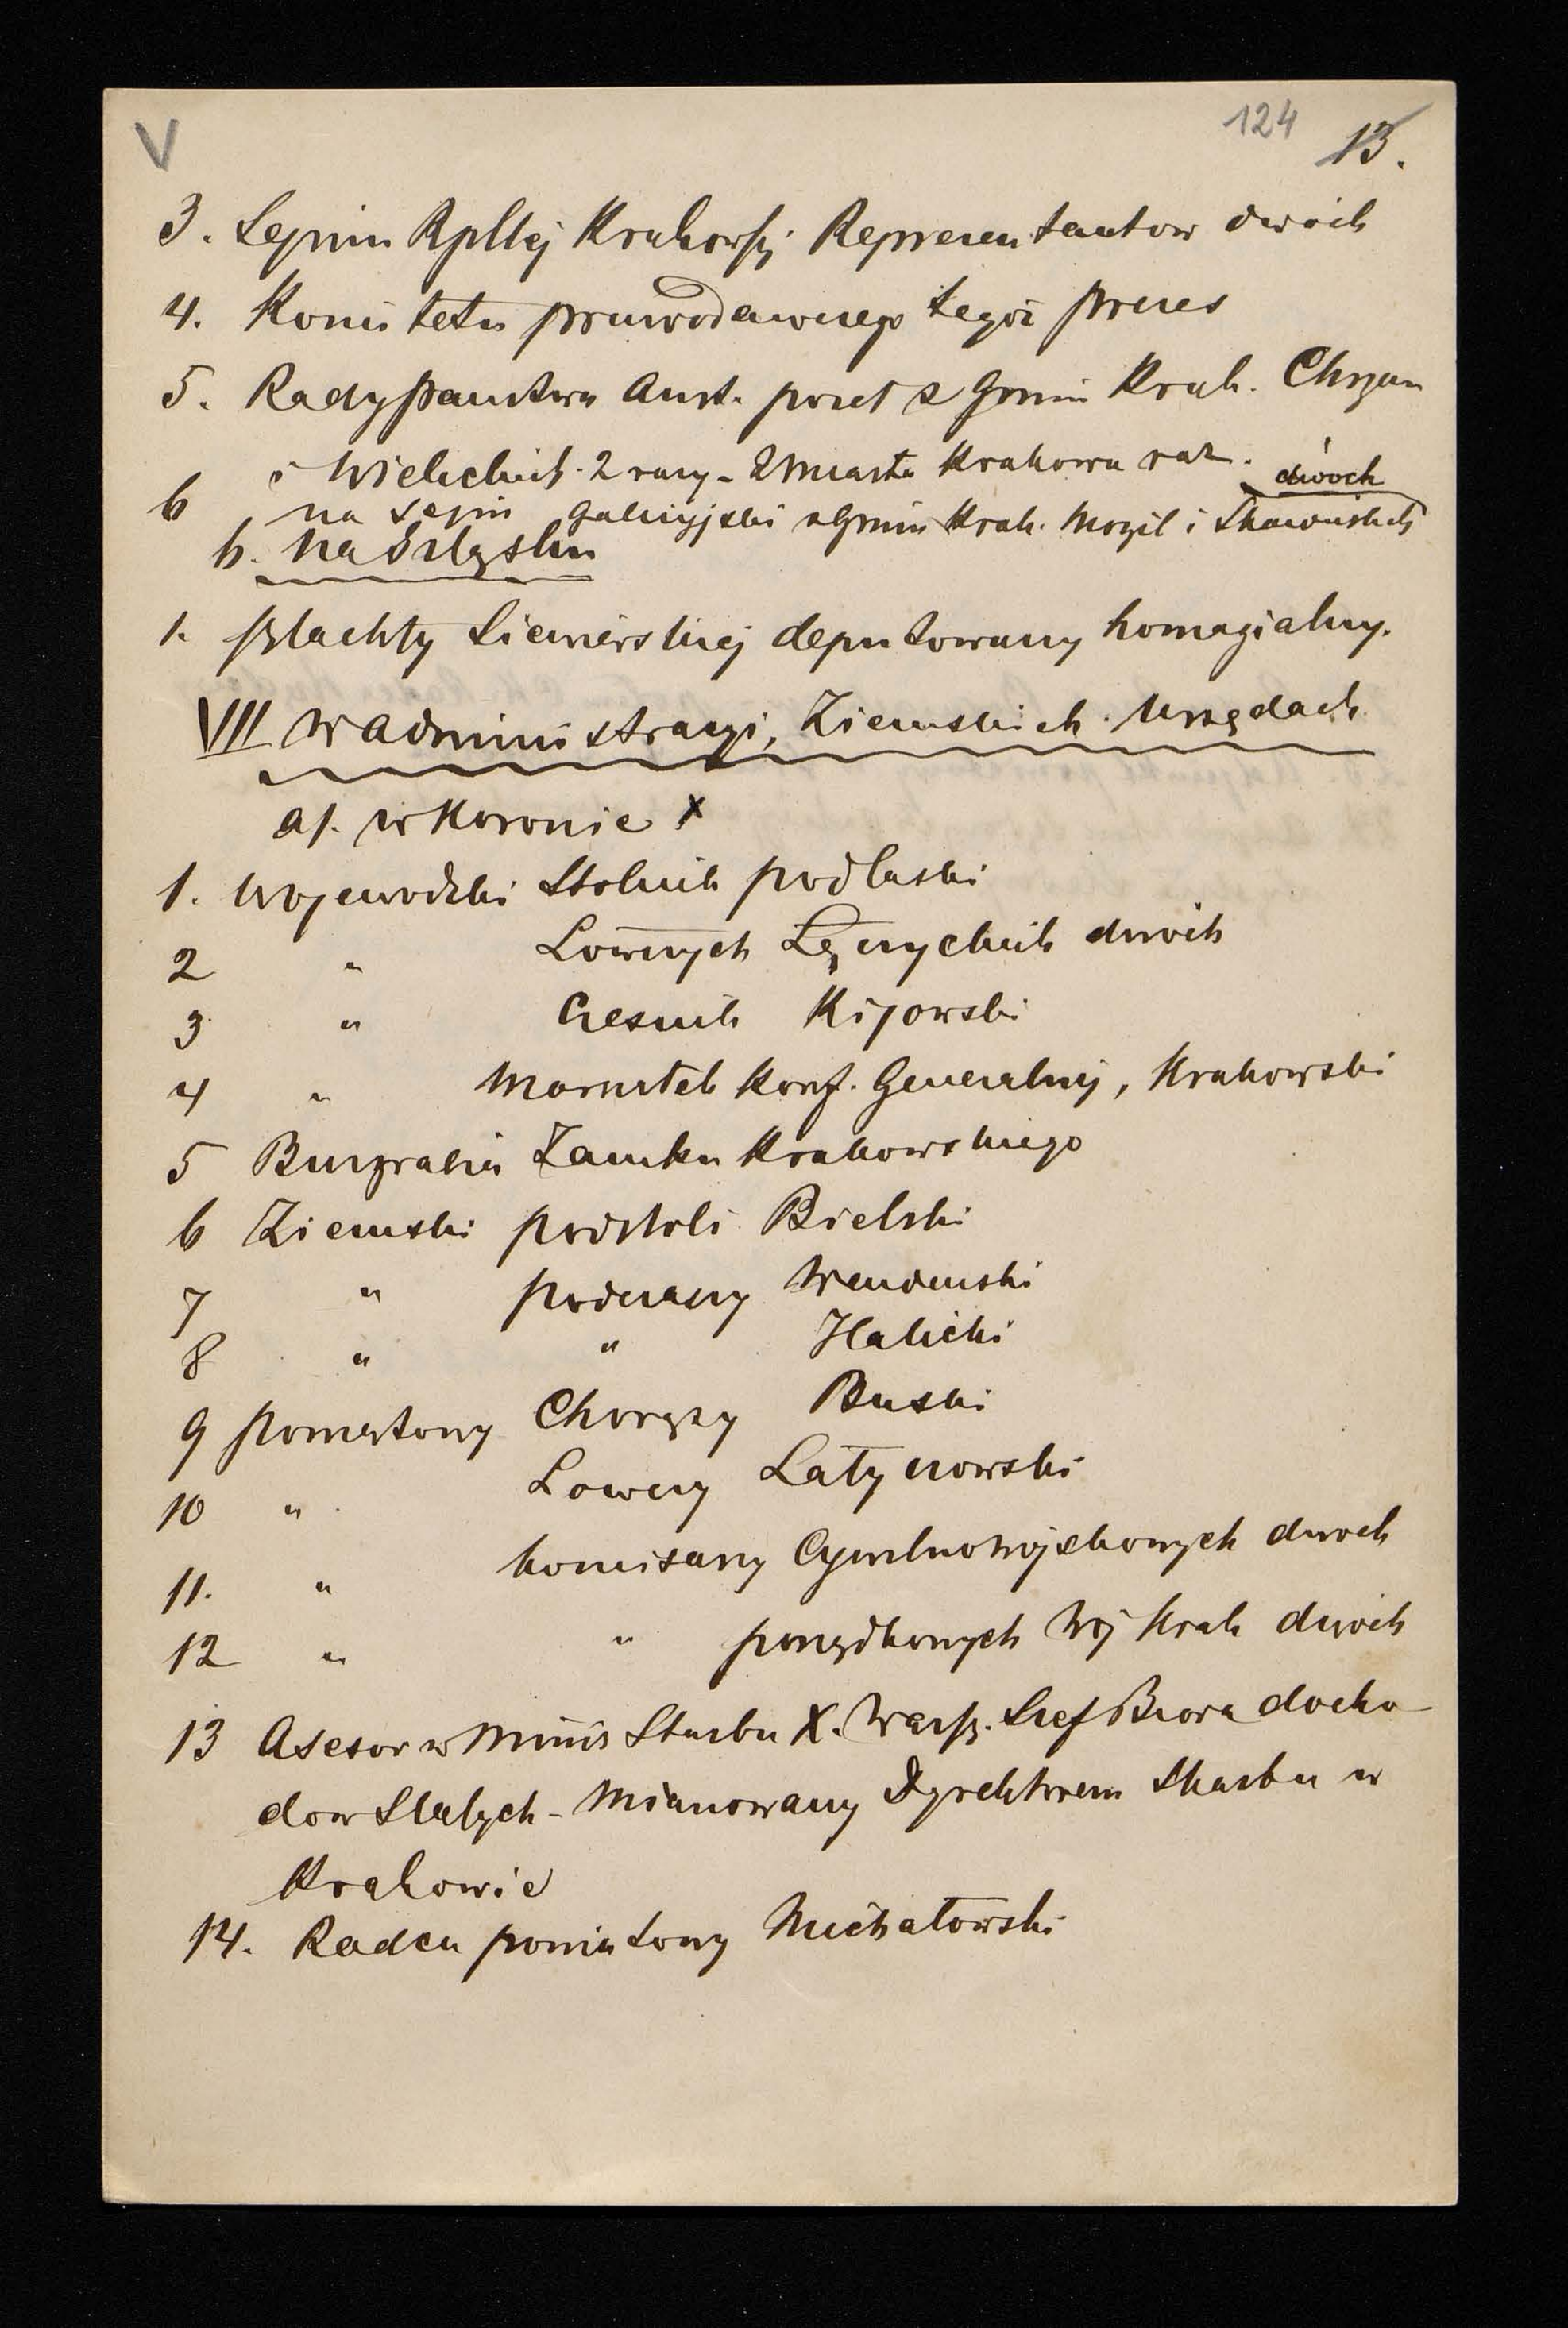 V 124 13.
3. Sejmu Rpltej Krakowsj Reprezentantow dwóch
4. Komitetu prawodawczego tegoż prezes
5. Rady państwa Aust. poseł z Gmin Krak. Chrzan
i Wielickich. 2 razy - Z miasta Krakowa raz. dwóch
6 na sejm galicyjski z Gmin Krak. Mogil i Skawińskich
b. na Szląsku
1. szlachty Siewierskiej deputowany homagialny.
VII w administracyi, Ziemskich Urzędach
a/. w Koronie x
1. Wojewodzki Stolnik podlaski
2 " Łowczych Łęczyckich dwóch
3 " Cześnik Kijowski
4 " Marszałek Konf. Generalnej, Krakowski
5 Burgrabia Zamku Krakowskiego
6 Ziemski podstoli Bielski
7 " podczaszy Wendeński
8 " " Halicki
9 powiatowy Chorąży Buski
10 " Łowczy Latyczowski
11. " komisarzy Cywilnowojskowych dwoch
12 " " porządkowych Wój Krak dwóch
13 Asesor w Minis Skarbu X. Warsz. Szef Biora docho
dow Stałych - Mianowany Dyrektorem Skarbu w
Krakowie
14. Radca powiatowy Michałowski